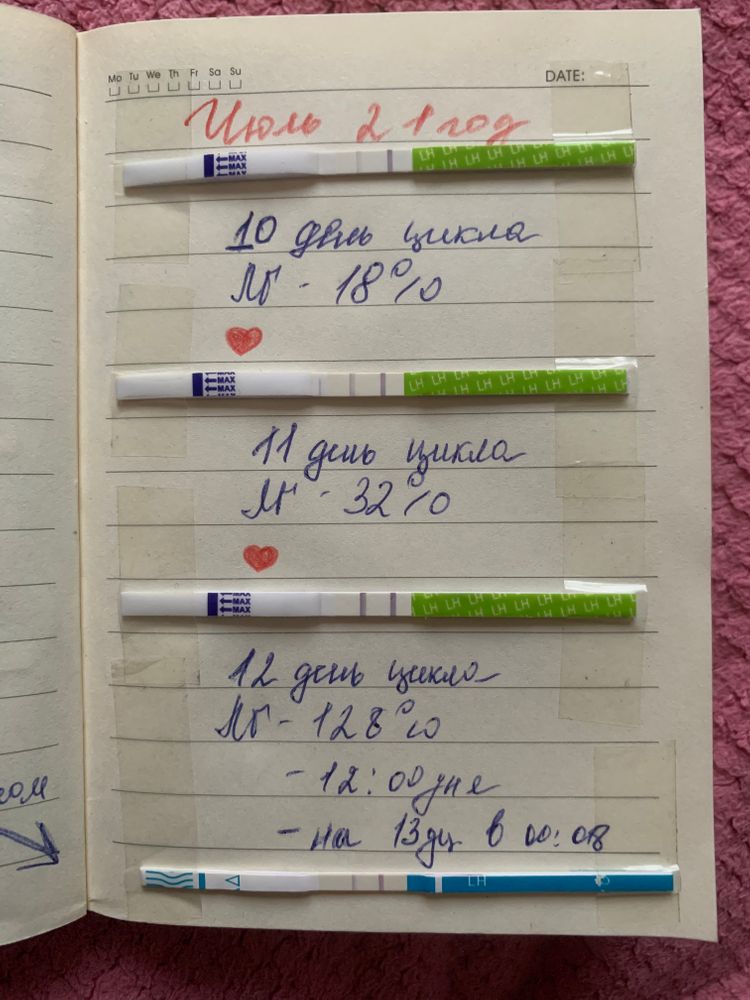 Mo Tu We Th Fr Sa Su DATE:
Июль 21 год
MAX
MAX
MAX
LH LH LH LH LH LH LH
10 день цикла
ЛГ - 18%
MAX
MAX
MAX
LH LH LH LH LH LH LH
11 день цикла
ЛГ - 32%
MAX
MAX
MAX
LH LH LH LH LH LH LH
12 день цикла
ЛГ - 128%
- 12:00 дня
- на 13дц в 00:08
ом
LH